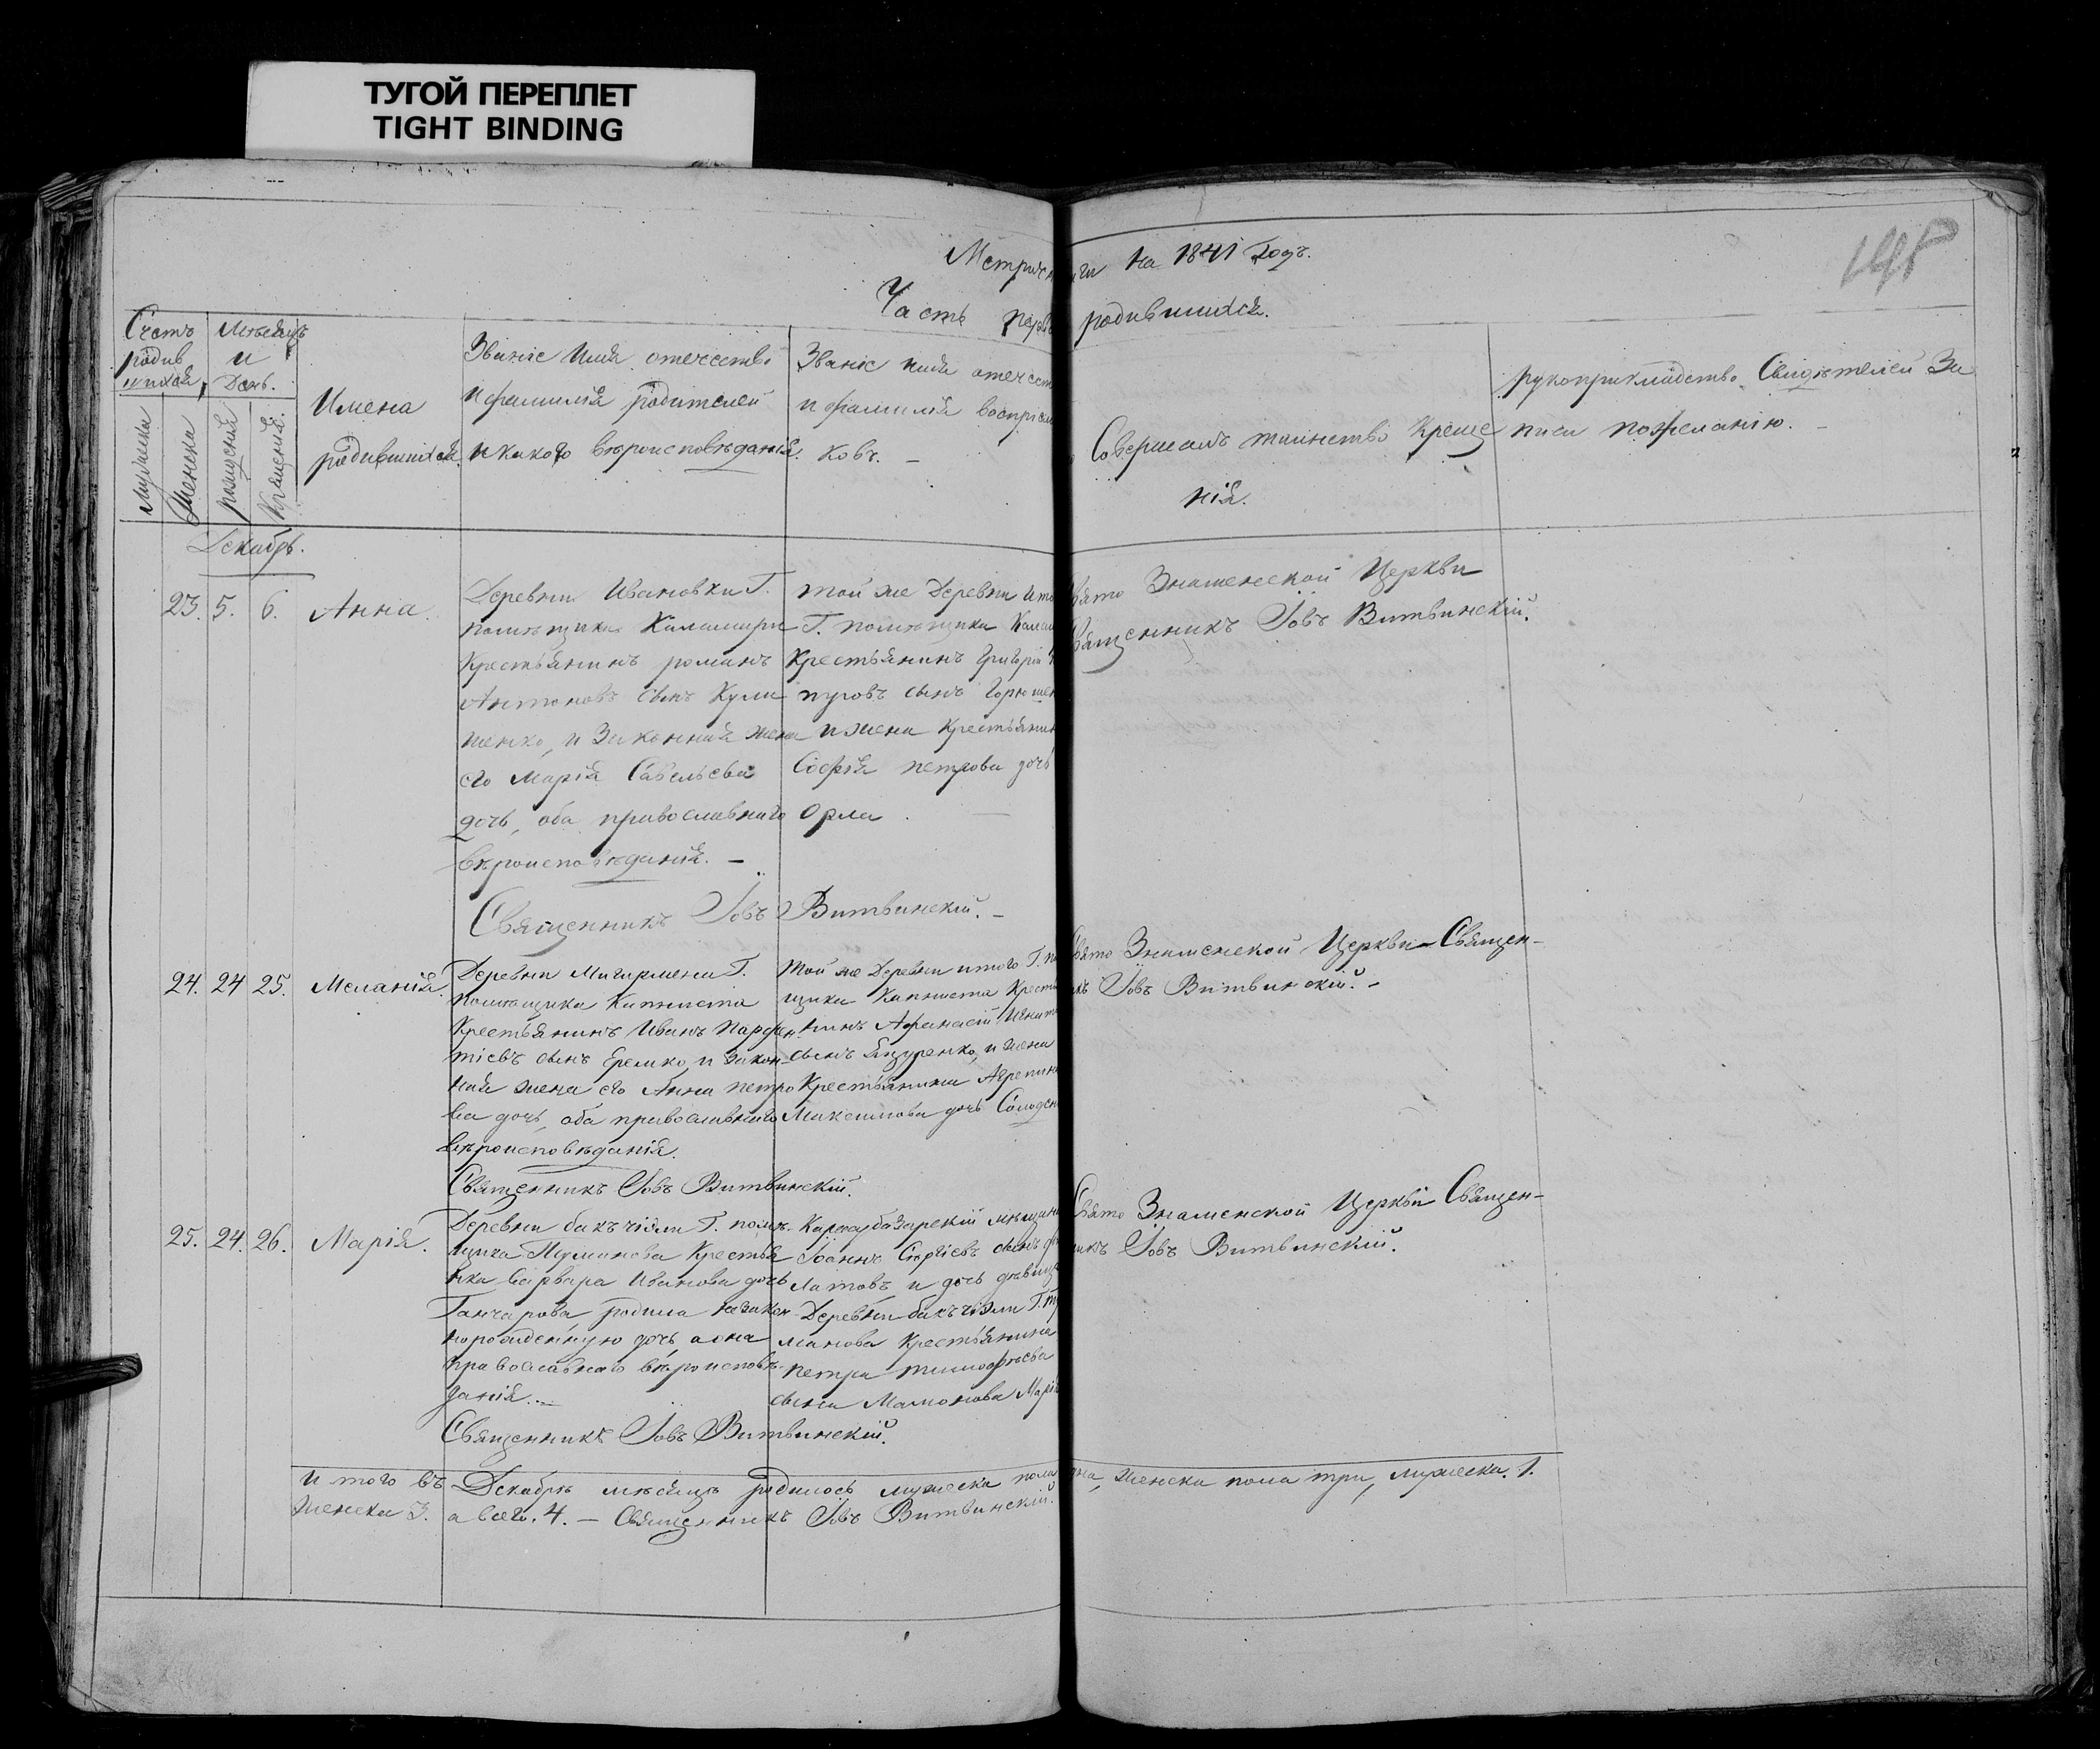 ТУГОЙ ПЕРЕПЛЕТ
TIGHT BINDING
на 1841 Годъ.
Часть родившихся.
Счетъ
родив
шихся,
Мѣсяцъ
и
День.
Мужеска
Женска
рожденія
Крещенія.
Имена
родившихся.
Званіе Имя отечество
и фамилія родителей
и какого вѣроисповѣданія.
Званіе имя отечест
и фамилія воспріем
ковъ. –
Совершалъ таинство Креще
нія.
рукоприкладство Свидѣтелей За
писи пожеланію. –
Декабрь.
23. 5. 6. Анна.
Деревни Ивановки Г.
помѣщика
Крестьянинъ романъ
Антоновъ сынъ Кули
шенко, и Законная жена
его Марія Савельева
дочь, оба православнаго
вѣроисповѣданія. –
Священникъ Іовъ Витвинскій. –
той же Деревни и то
Г. помѣщика
Крестьянинъ Григорій
сынъ
и жена Крестьянин
Софія петрова дочь
Орла
вято Знаменской Церкви
вященникъ Іовъ Витвинскій.
24. 24 25. Меланія.
Деревни Г.
помѣщика Капниста
Крестьянинъ Иванъ Парфен
тіевъ сынъ Еремко, и закон
ная жена его Анна петро
ва дочь, оба православнаго
вѣроисповѣданія.
Священникъ Іовъ Витвинскій.
Той же Деревни и того Г. по
щика Капниста Кресть
нинъ Афанасій
сынъ и жена
Крестьянина
Максимова дочь
вято Знаменской Церкви Священ-
икъ Іовъ Витвинскій. –
25. 24. 26. Марія.
Деревни Г. помѣ-
щика Туманова Крестья
нка Варвара Иванова дочь
Ганчарова, родила незакон
норожденную дочь, а она
православнаго вѣроисповѣ-
данія. –
Священникъ Іовъ Витвинскій.
Карасубазарскій мѣщани
Іоаннъ сынъ
и дочь дѣвица
Деревни Г. Ту
манова Крестьянина
петра тимофѣева
сына Мамонова Марія
Свято Знаменской Церкви Священ-
никъ Іовъ Витвинскій.
и того въ Декабрѣ мѣсяцѣ родилось мужеска пола дна, женска пола три, мужеска. 1.
женска 3. а всего. 4. – Священникъ Іовъ Витвинскій.